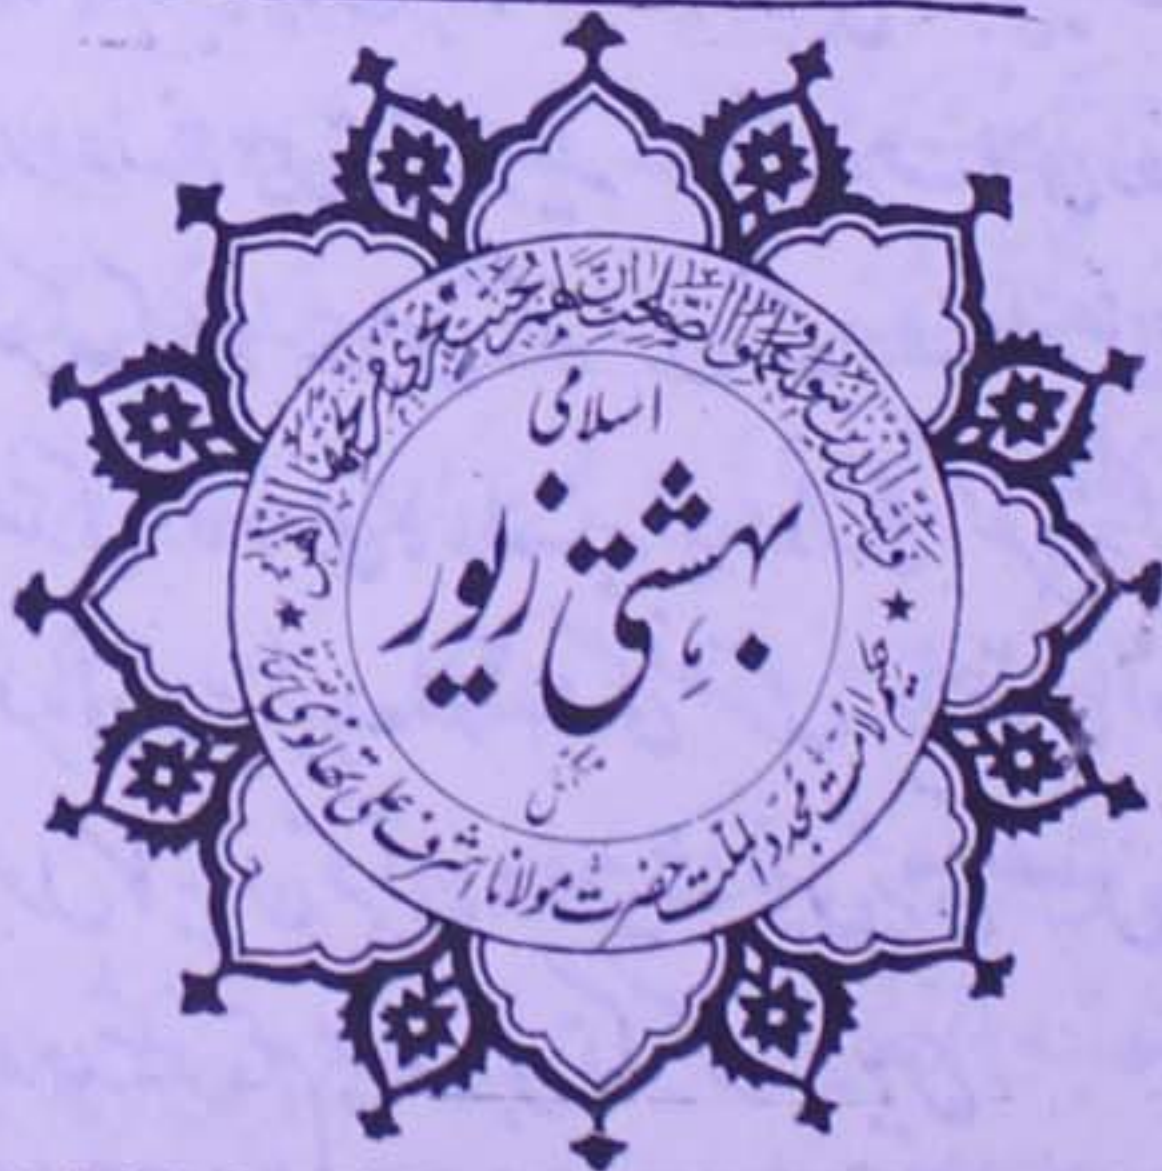 وبشر الذین اٰمنوا وعملوا الصّٰلحٰت انّ لهم جنّٰت تجری من تحتها الانهٰر
اسلامی
بہشتی زیور
حکیم الامت مجدد الملت حضرت مولانا اشرف علی تھانوی